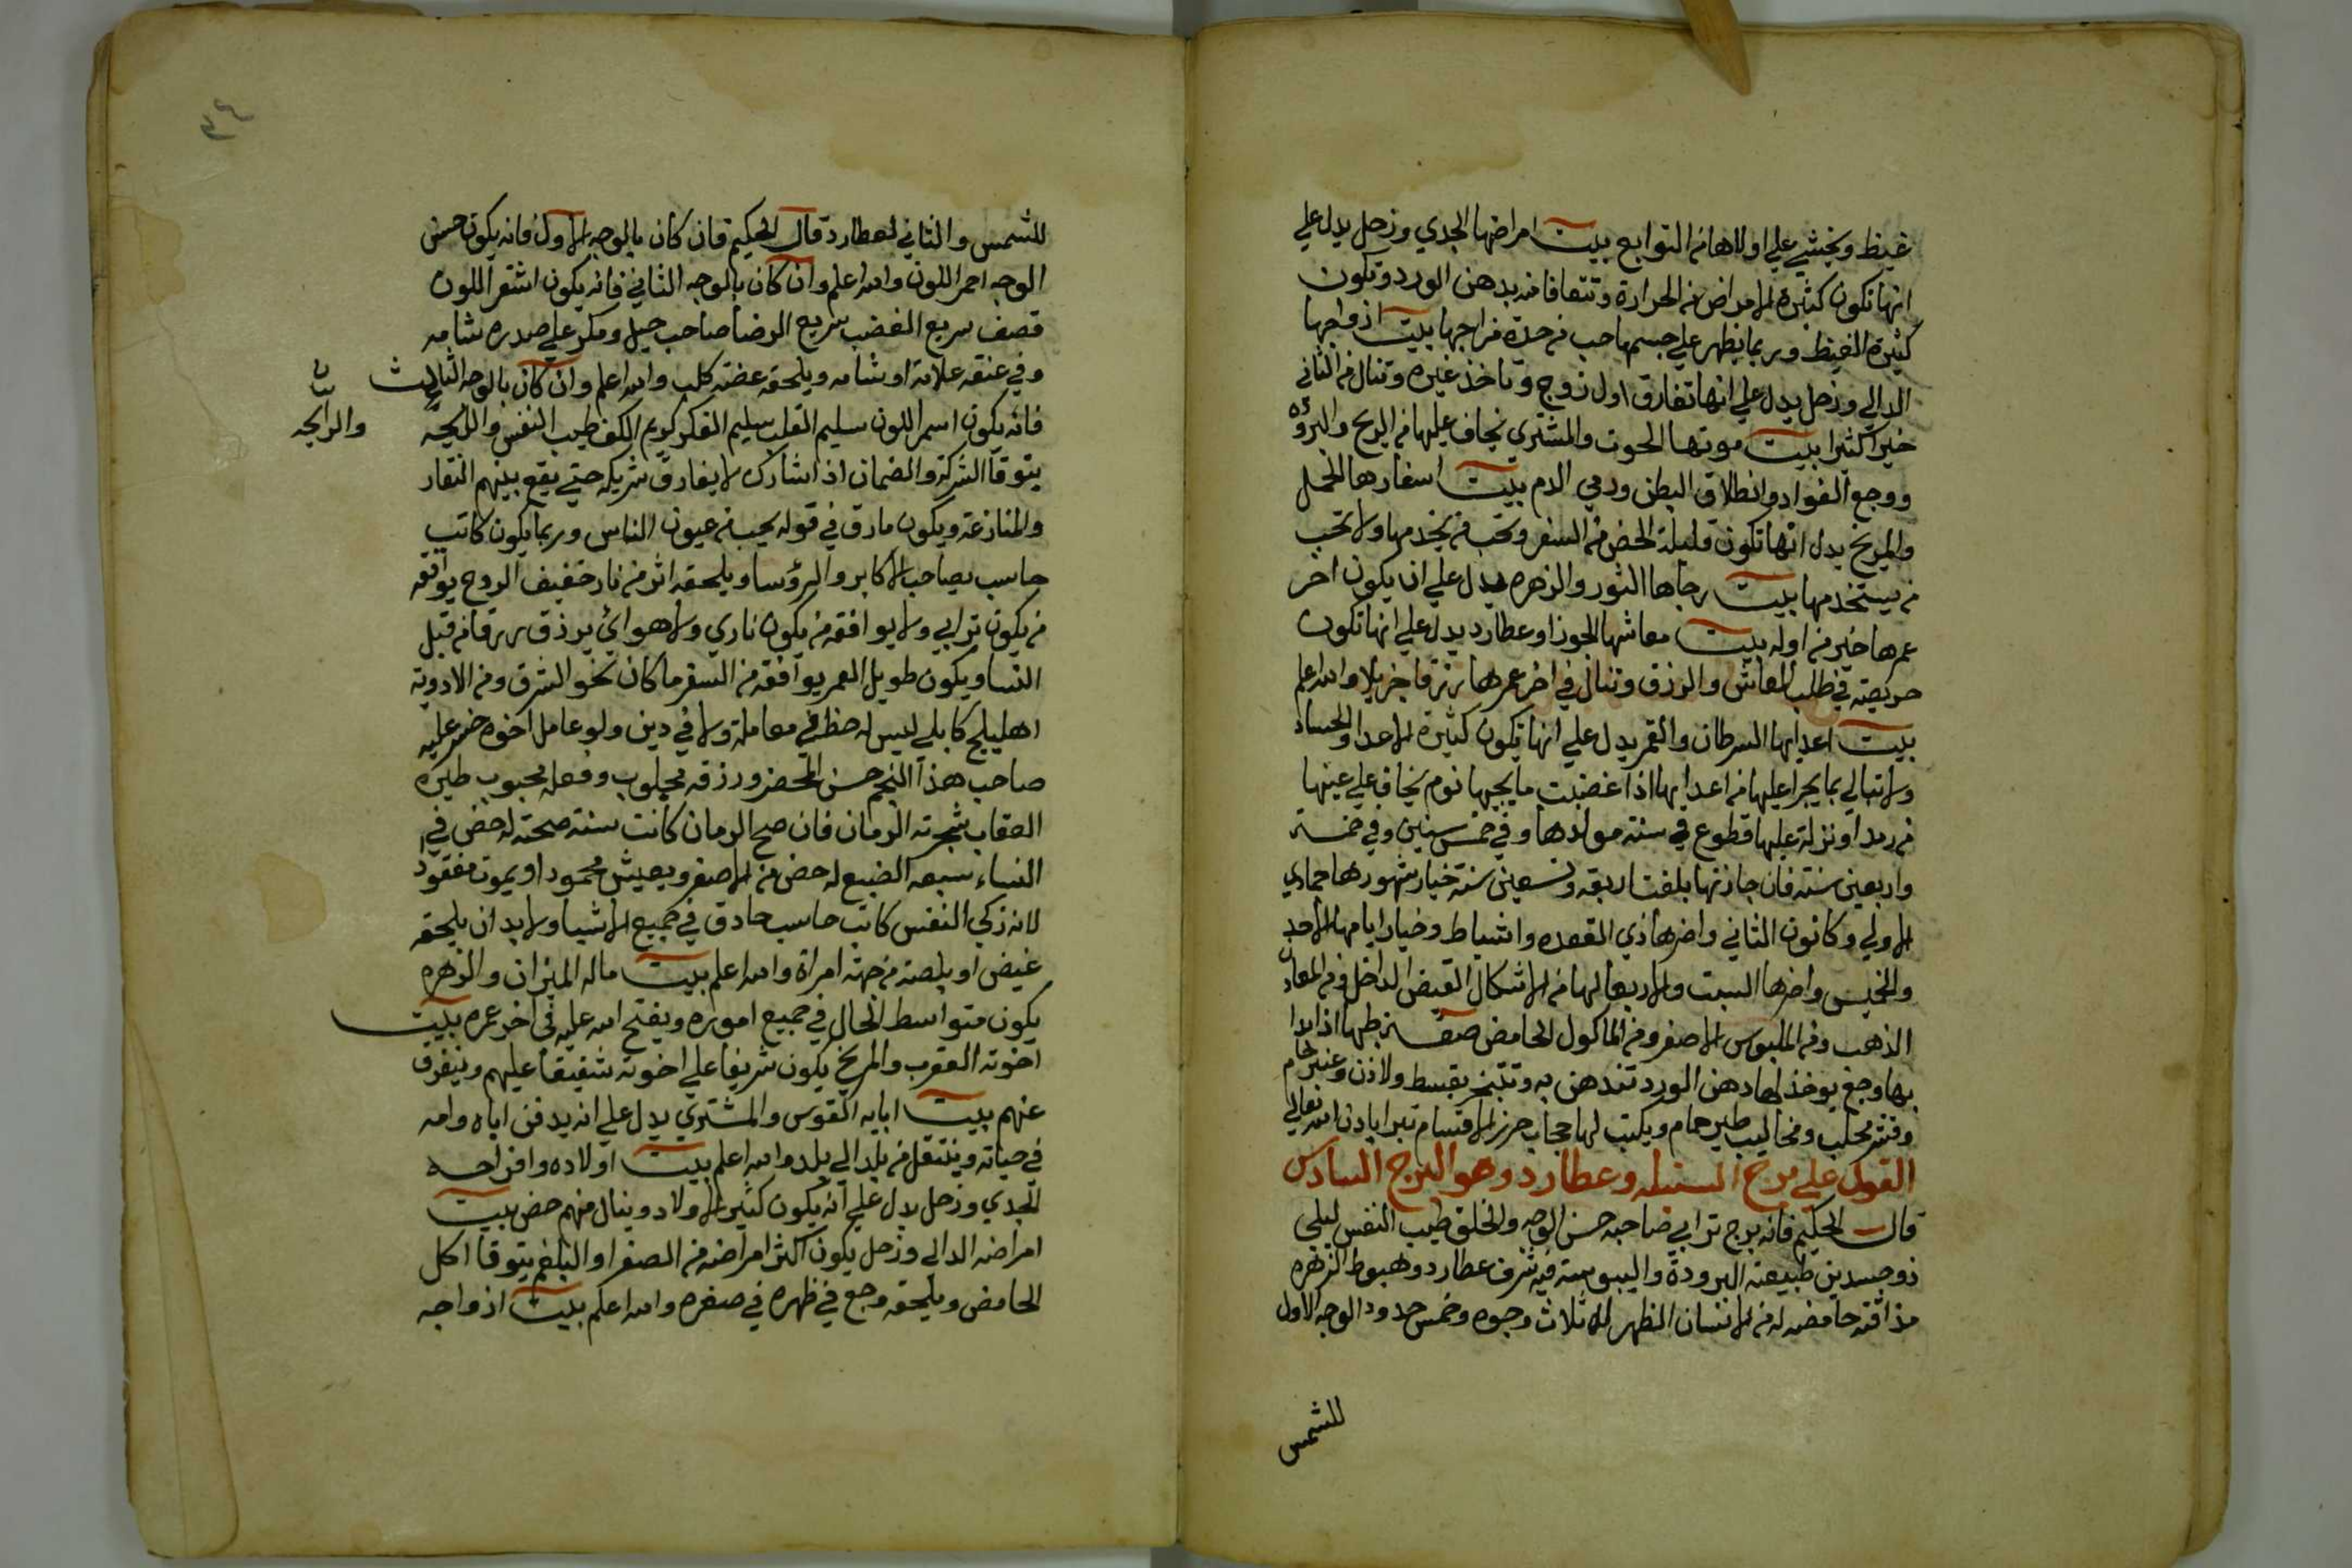 غيظ ويخشي علي اولادها من التوابع بيت امراضها الجدي وزحل يدل علي
انها تكون كثيرة الامراض من الحرارة وتتعافا منه بدهن الورد وتكون
كثيرة الغيظ وربما يظهر علي جسمها حب من حدة مزاجها بيت ازواجها
الدالي وزحل يدل علي انها تفارق اول زوج وتاخذ غيره وتنال من الثاني
خيرا كثيرا بيت موتها الحوت والمشتري يخاف عليها من الريح والبروده
ووجع الفواد وانطلاق البطن ورمي الدم بيت اسفارها الحمل
والمريخ يدل انها تكون قليلة الحض من السفر وتحب من يخدمها ولا تحب
من يستخدمها بيت رجاها الثور والزهره يدل علي ان يكون اخر
عمرها خير من اوله بيت معاشها الجوزا وعطارد يدل علي انها تكون
حريصة في طلب المعاش والرزق وتنال في اخر عمرها رزقا جزيلا والله اعلم
بيت اعدايها السرطان والقمر يدل علي انها تكون كثيرة الاعدا والحساد
ولا تبالي بما يجرا عليها من اعدايها اذا غضبت ما يجيها نوم يخاف علي عينها
من رمد او نزلة عليها قطوع في سنة مولدها وفي خمس سنين وفي خمسة
واربعين سنة فان جازتها بلغت اربعة وتسعين سنة خيار شهورها جمادي
الاولي وكانون الثاني واضرها ذي القعده واشباط وخيار ايامها الاحد
والخميس واضرها السبت والاربعا لها من الاشكال القبض الداخل ومن المعادن
الذهب ومن الملبوس الاصفر ومن الماكول الحامض صفة طبها اذا بدا
بها وجع يوخذ لها دهن الورد تندهن به وتتبخر بقسط ولاذن وعنبر خام
وقشر محلب ومخاليب طير حمام ويكتب لها حجاب حرز الاقسام تبرا باذن الله تعالي
القول علي برج السنبله وعطارد وهو البرج السادس
قال الحكيم فانه برج ترابي صاحبه حسن الوجه والخلق طيب النفس ليلي
ذو جسدين طبيعته البرودة واليبوسة فيه شرف عطارد وهبوط الزهره
مذاقته حامضه له من الانسان الظهر له ثلاث وجوه وخمس حدود الوجه الاول
للشمس
٣٤
للشمس والثاني لعطارد قال الحكيم فان كان بالوجه الاول فانه يكون حسن
الوجه احمر اللون والله اعلم وان كان بالوجه الثاني فانه يكون اشقر اللون
قصف سريع الغضب سريع الرضا صاحب حيل ومكر علي صدره شامه
وفي عنقه علامة او شامه ويلحقه عضة كلب والله اعلم وان كان بالوجه الثالث
فانه يكون اسمر اللون سليم القلب سليم الفكر كريم الكف طيب النفس والرايحه
والرايحه
يتوقا الشركة والضمان اذا شارك لا يفارق شريكه حتي يقع بينهم النقار
والمنازعة ويكون مارق في قوله يحب من عيون الناس وربما يكون كاتب
حاسب يصاحب الاكابر والرؤسا ويلحقه اثر من نار خفيف الروح يوافقه
من يكون ترابي ولا يوافقه من يكون ناري ولا هوائي يرزق رزقا من قبل
النسا ويكون طويل العمر يوافقه من السفر ما كان نحو الشرق ومن الادوية
اهليلج كابلي ليس له حظ في معاملة ولا في دين ولو عامل اخوه خسر عليه
صاحب هذا النجم حسن المحضر ورزقه مجلوب وفعله محبوب طيره
العقاب شجرته الرمان فان صح الرمان كانت سنته صحته له حض في
النساء سبعه الضبع له حض من الاصفر ويعيش محمود او يموت مفقود
لانه زكي النفس كاتب حاسب حادق في جميع الاشيا ولا بد ان يلحقه
غيض او بلصة من جهة امراة والله اعلم بيت ماله الميزان والزهره
يكون متواسط الحال في جميع اموره ويفتح الله عليه في اخر عمره بيت
اخوته العقرب والمريخ يكون شريفا علي اخوته شفيقا عليهم ويتفرق
عنهم بيت ابايه القوس والمشتري يدل علي انه يدفن اباه وامه
في حياته وينتقل من بلد الي بلد والله اعلم بيت اولاده وافراحه
الجدي وزحل يدل علي انه يكون كثير الاولاد وينال منهم حض بيت
امراضه الدالي وزحل يكون اكثر امراضه من الصفرا والبلغم يتوقا اكل
الحامض ويلحقه وجع في ظهره في صغره والله اعلم بيت ازواجه